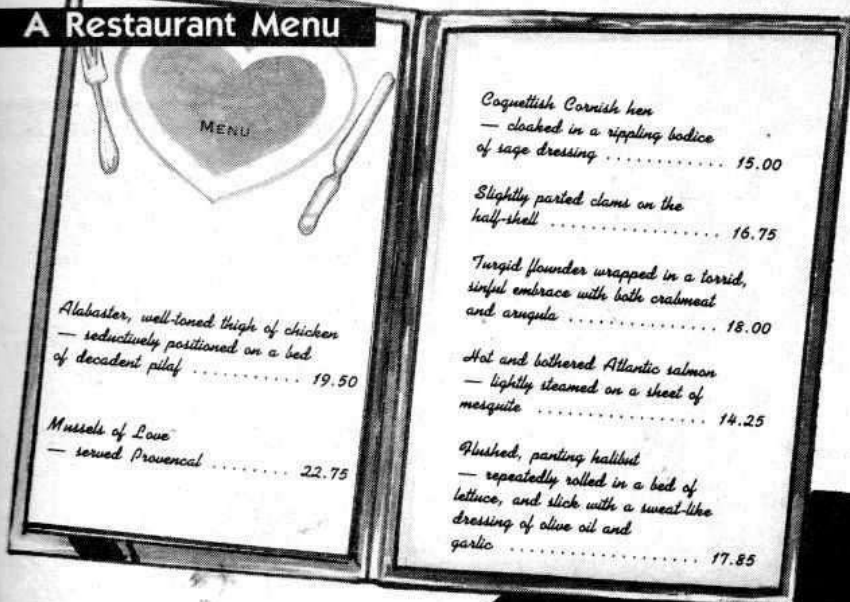 A Restaurant Menu
MENU
Alabaster, well-toned thigh of chicken
— seductively positioned on a bed
of decadent pilaf ........... 19.50
Mussels of Love
— served Provencal ........ 22.75
Coquettish Cornish hen
— cloaked in a rippling bodice
of sage dressing ............ 15.00
Slightly parted clams on the
half-shell ................. 16.75
Turgid flounder wrapped in a torrid,
sinful embrace with both crabmeat
and arugula ............... 18.00
Hot and bothered Atlantic salmon
— lightly steamed on a sheet of
mesquite .................. 14.25
Flushed, panting halibut
— repeatedly rolled in a bed of
lettuce, and slick with a sweat-like
dressing of olive oil and
garlic .................... 17.85